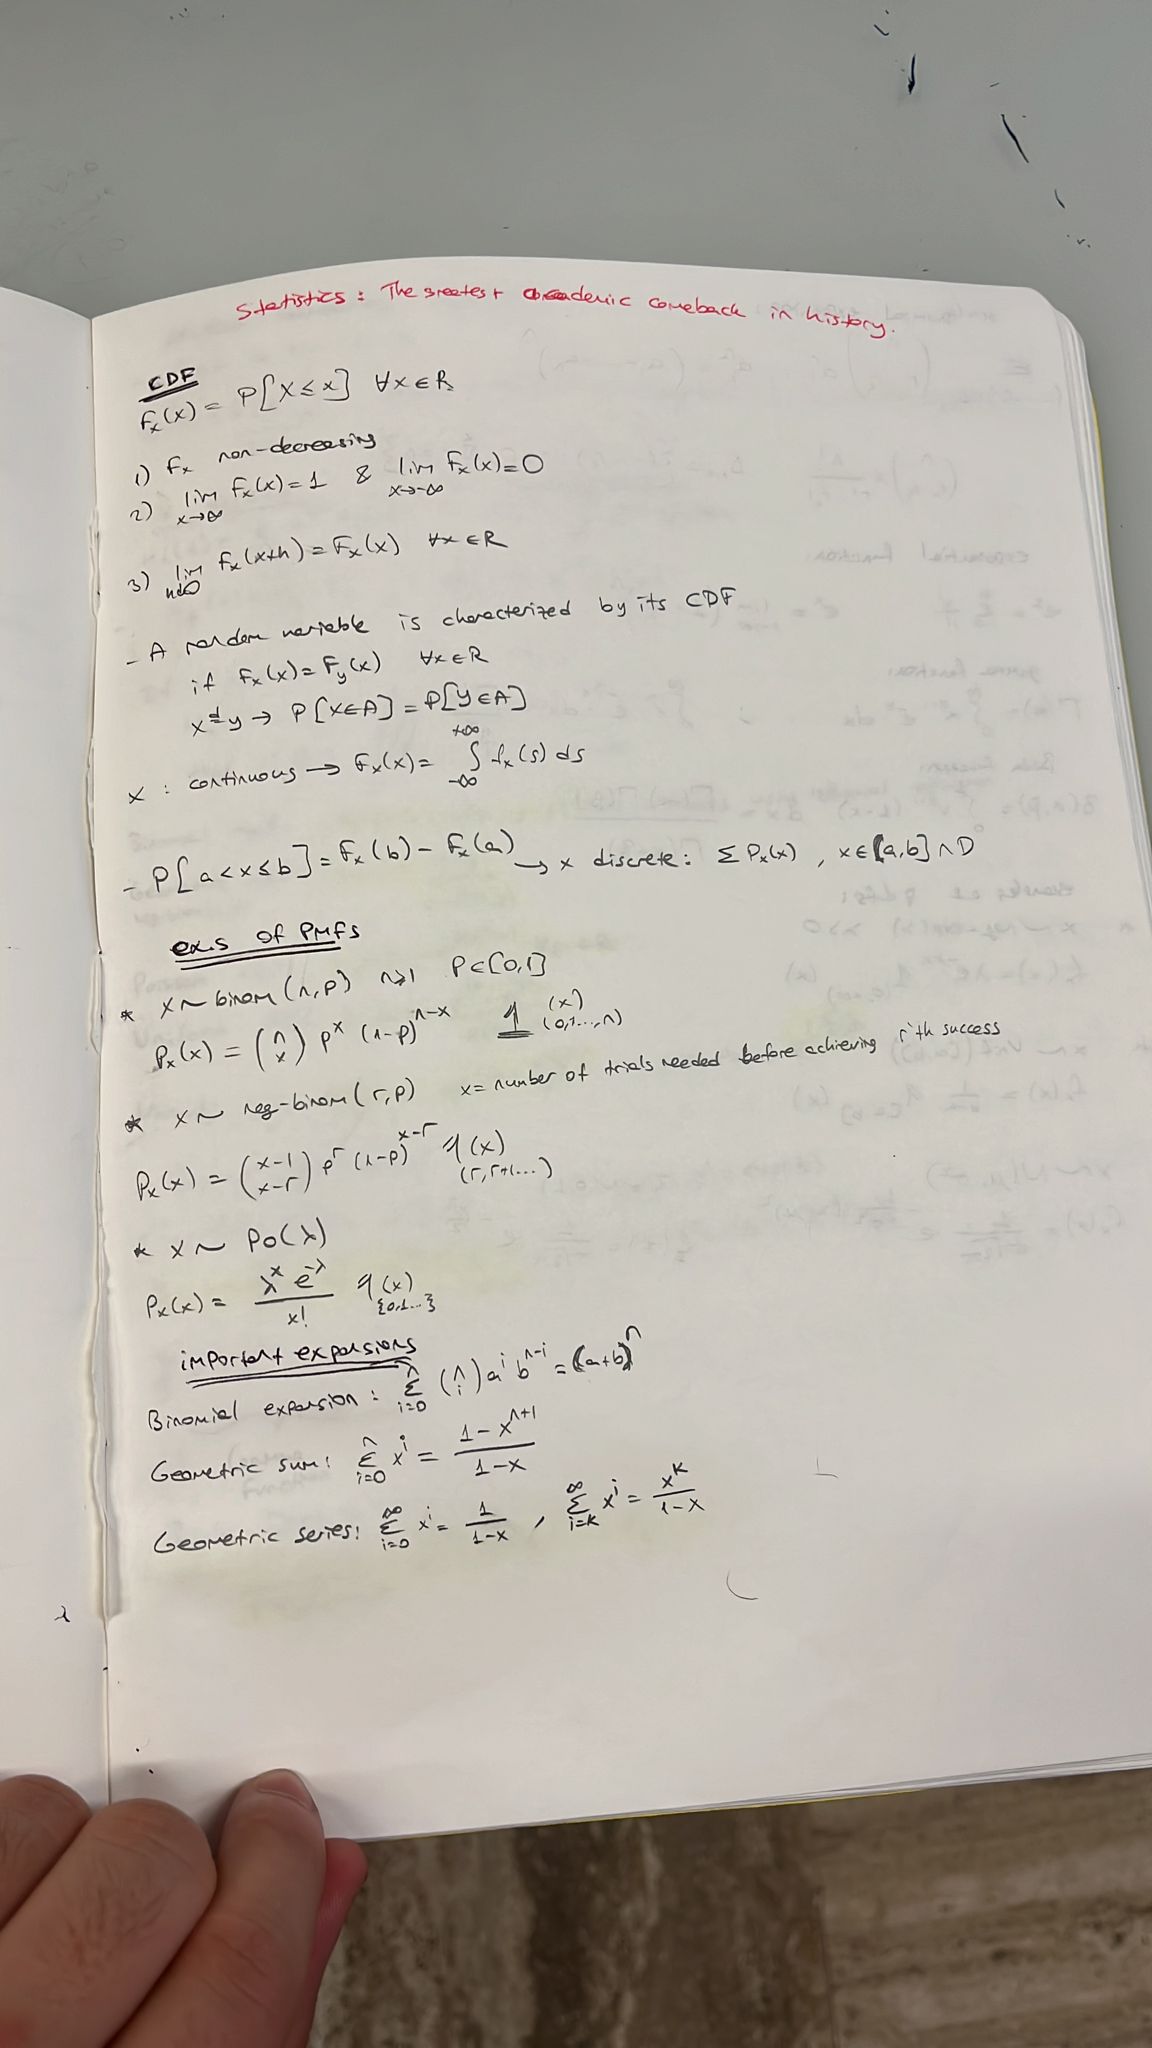 Statistics: The greatest academic comeback in history.
CDF
Fx(x) = P[X ≤ x] ∀x ∈ R
1) Fx non-decreasing
2) lim x→∞ Fx(x) = 1 & lim x→-∞ Fx(x) = 0
3) lim h↓0 Fx(x+h) = Fx(x) ∀x ∈ R
- A random variable is characterized by its CDF
if Fx(x) = Fy(x) ∀x ∈ R
x =ᵈ y → P[X ∈ A] = P[y ∈ A]
x : continuous → Fx(x) = ∫_{-∞}^{+∞} fx(s) ds
- P[a < x ≤ b] = Fx(b) - Fx(a) → x discrete: Σ Px(x) , x ∈ (a,b] ∩ D
exs of PMFs
* x ~ binom(n,p) n≥1 P ∈ [0,1]
Px(x) = (n x) p^x (1-p)^{n-x} 𝟙(x) (0,1...,n)
* x ~ neg-binom(r,p) x = number of trials needed before achieving r'th success
Px(x) = (x-1 x-r) p^r (1-p)^{x-r} 𝟙(x) (r,r+1...)
* x ~ Po(λ)
Px(x) = λ^x e^{-λ} / x! 𝟙(x) {0,1...}
important expansions
Binomial expansion : Σ_{i=0}^{n} (n i) a^i b^{n-i} = (a+b)^n
Geometric sum: Σ_{i=0}^{n} x^i = (1-x^{n+1}) / (1-x)
Geometric series: Σ_{i=0}^{∞} x^i = 1 / (1-x) , Σ_{i=k}^{∞} x^i = x^k / (1-x)